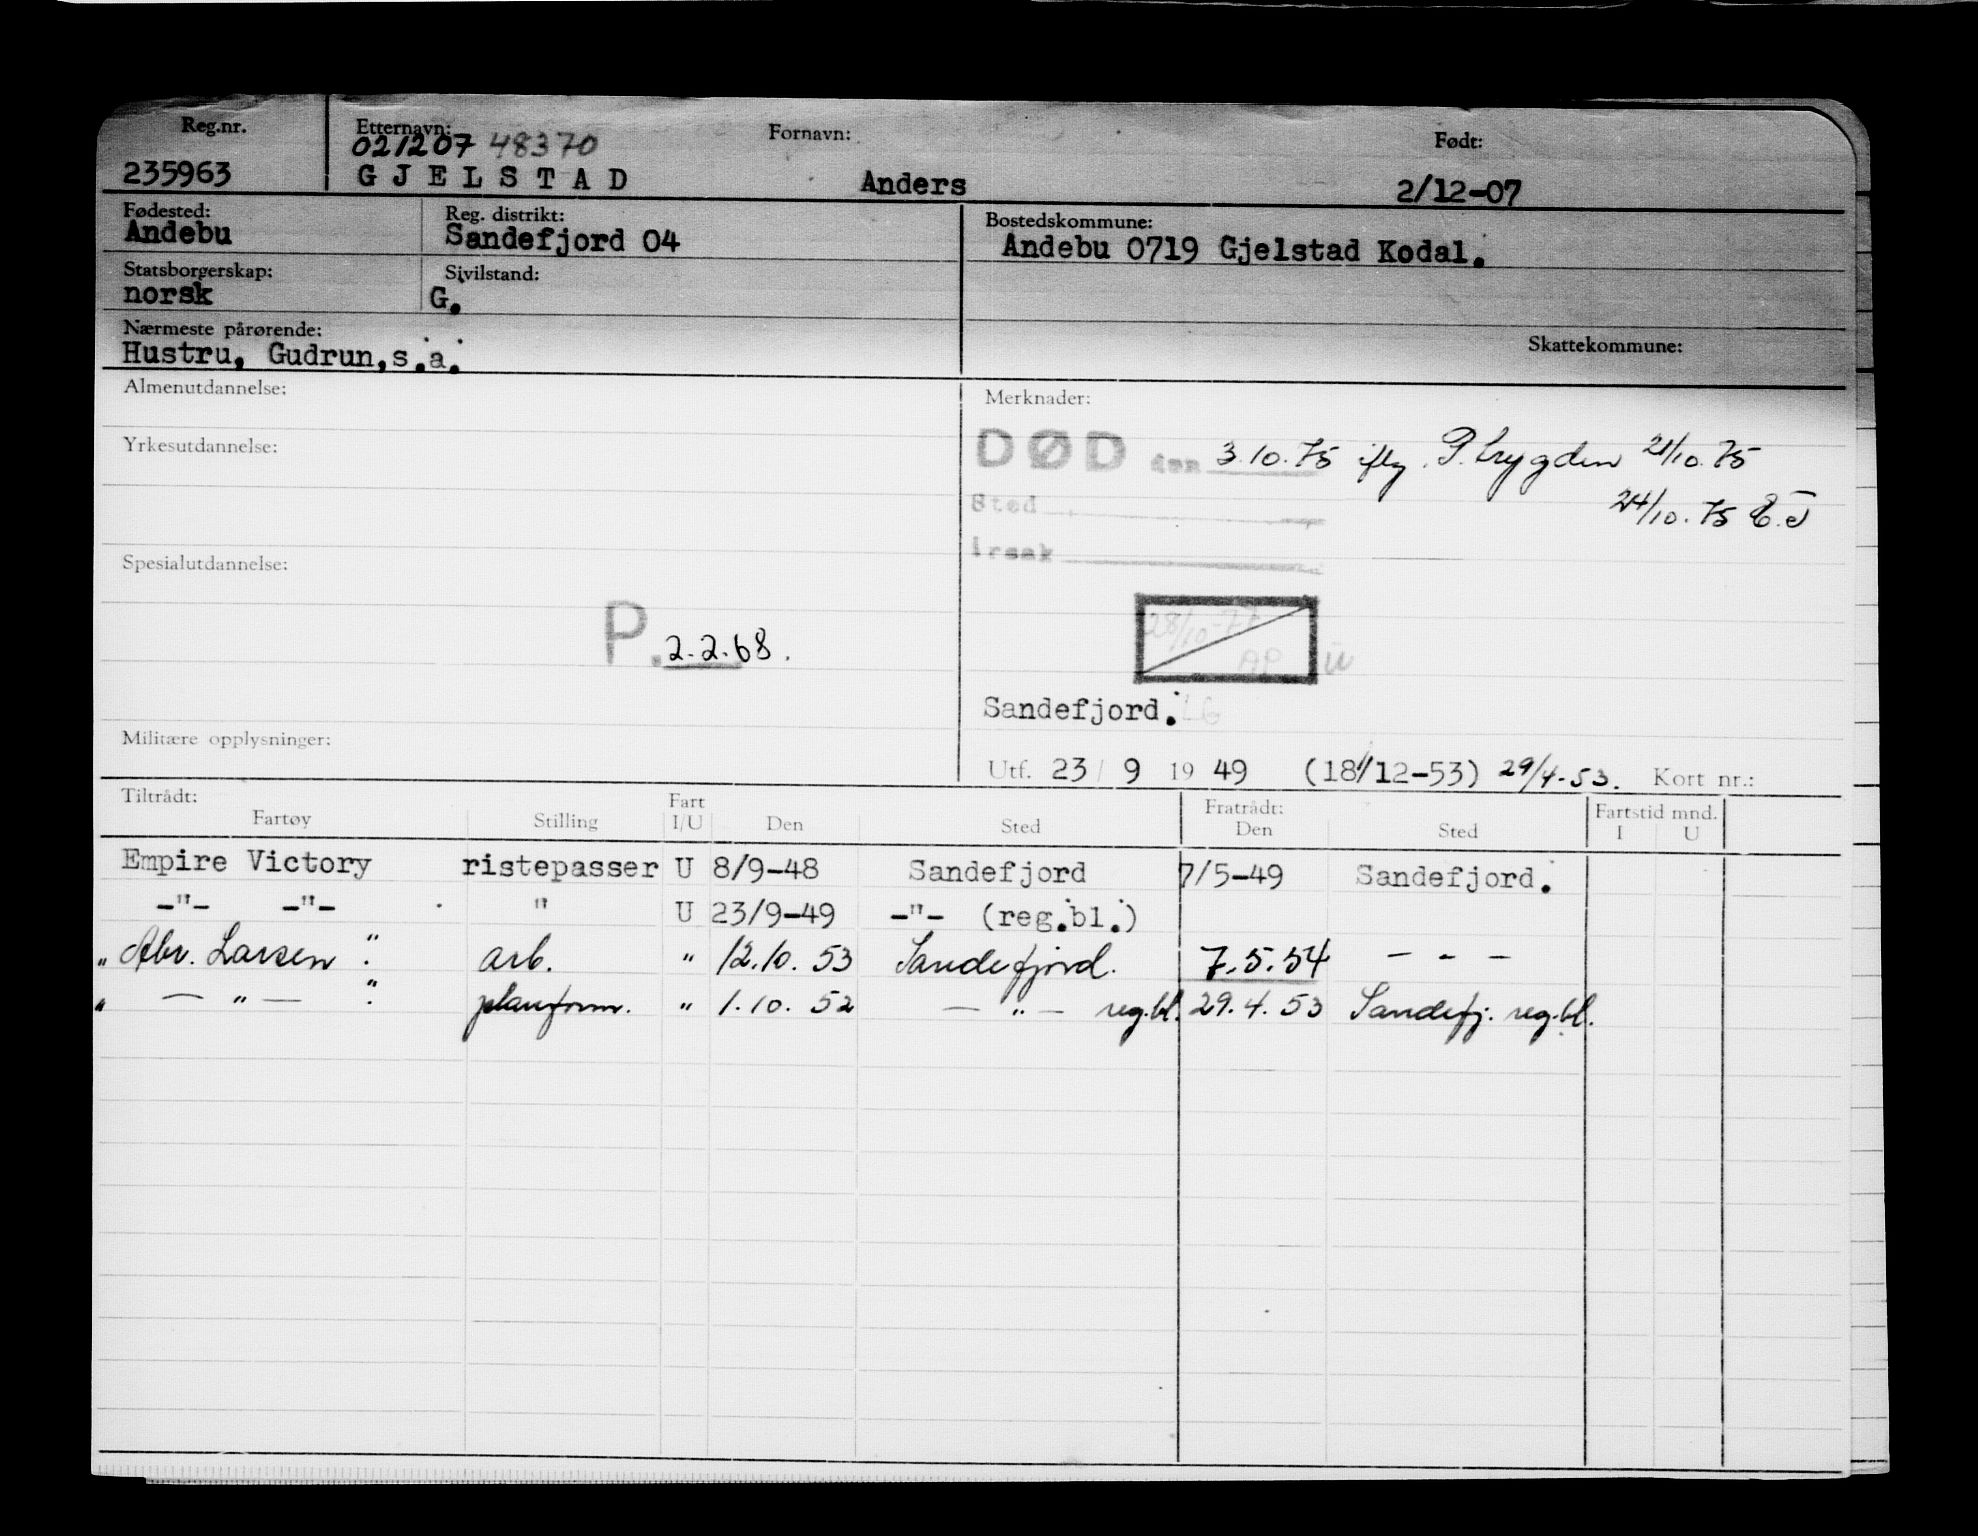 Reg.nr. Etternavn: Fornavn: Født:
021207 48370
235963 GJELSTAD Anders 2/12-07
Fødested: Reg. distrikt: Bostedskommune:
Andebu Sandefjord 04 Andebu 0719 Gjelstad Kodal.
Statsborgerskap: Sivilstand:
norsk G.
Nærmeste pårørende: Skattekommune:
Hustru, Gudrun, s.a.
Almenutdannelse: Merknader:
Yrkesutdannelse:
DØD den 3.10.75 iflg. P.trygden 21/10.75
Sted 24/10.75
Spesialutdannelse:
P. 2.2.68.
28/10-77
AP
Sandefjord.
Militære opplysninger:
Utf. 23/ 9 19 49 (18/12-53) 29/4-53. Kort nr.:
Tiltrådt: Fart Fratrådt: Fartstid mnd.
Fartøy Stilling I/U Den Sted Den Sted I U
Empire Victory ristepasser U 8/9-48 Sandefjord 7/5-49 Sandefjord.
-"- -"- " U 23/9-49 -"- (reg.bl.)
" Abr. Larsen " arb. " 12.10.53 Sandefjord. 7.5.54 - - -
" — " — " planform. " 1.10.52 — " — reg.bl. 29.4.53 Sandefj. reg.bl.